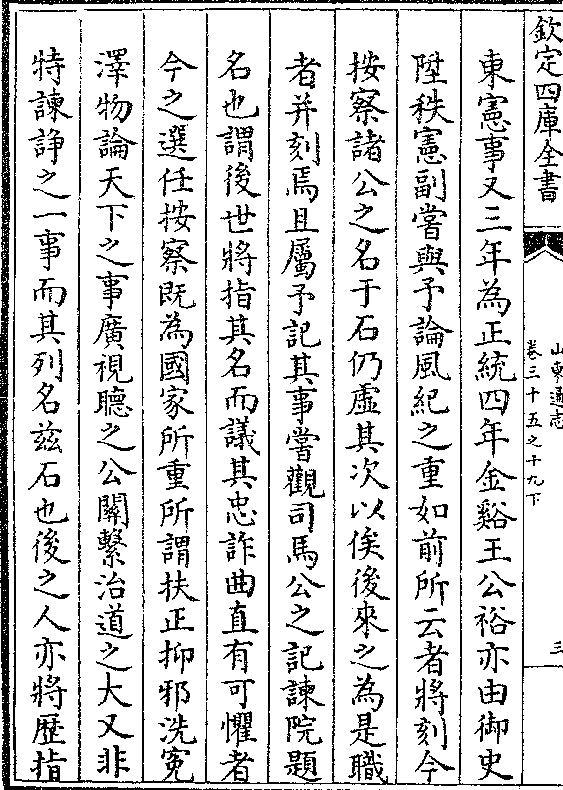 欽定四庫全書
山東通志
卷三十五之十九下
三
東憲事又三年為正統四年金谿王公裕亦由御史
陞秩憲副嘗與予論風紀之重如前所云者將刻今
按察諸公之名于石仍虛其次以俟後來之為是職
者并刻焉且屬予記其事嘗觀司馬公之記諫院題
名也謂後世將指其名而議其忠詐曲直有可懼者
今之選任按察既為國家所重所謂扶正抑邪洗寃
澤物論天下之事廣視聽之公關繫治道之大又非
特諫諍之一事而其列名兹石也後之人亦將歴指